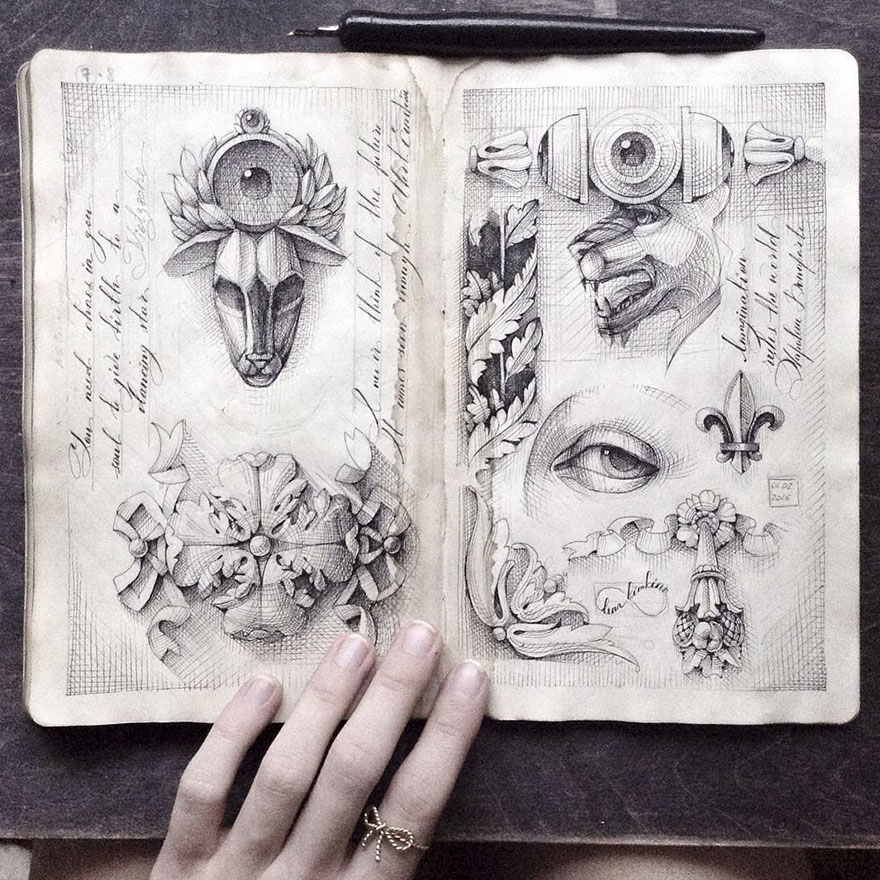 You need chaos in your
soul to give birth to a
dancing star.
Nietzsche
I never think of the future
It comes soon enough...
Imagination
rules the world
Napoleon Bonaparte
Lena Limkina